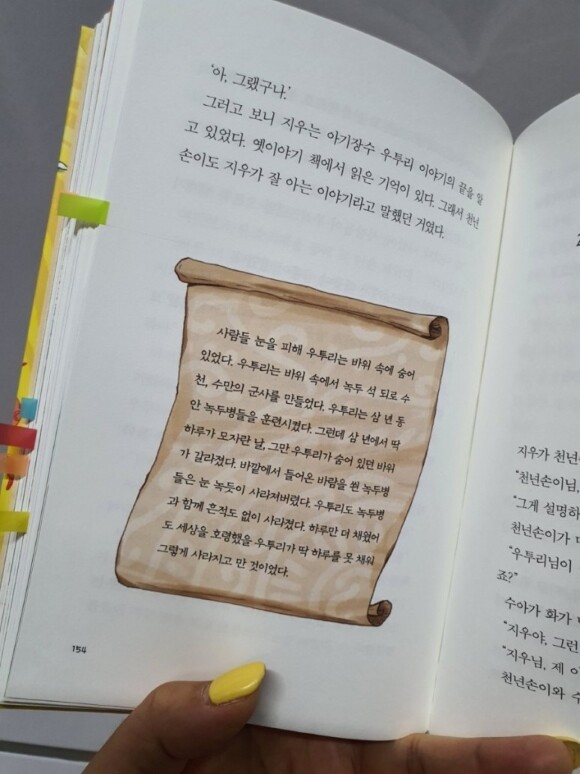 '아, 그랬구나.'
그러고 보니 지우는 아기장수 우투리 이야기의 끝을 알
고 있었다. 옛이야기 책에서 읽은 기억이 있다. 그래서 천년
손이도 지우가 잘 아는 이야기라고 말했던 거였다.
사람들 눈을 피해 우투리는 바위 속에 숨어
있었다. 우투리는 바위 속에서 녹두 석 되로 수
천, 수만의 군사를 만들었다. 우투리는 삼 년 동
안 녹두병들을 훈련시켰다. 그런데 삼 년에서 딱
하루가 모자란 날, 그만 우투리가 숨어 있던 바위
가 갈라졌다. 바깥에서 들어온 바람을 쐰 녹두병
들은 눈 녹듯이 사라져버렸다. 우투리도 녹두병
과 함께 흔적도 없이 사라졌다. 하루만 더 채웠어
도 세상을 호령했을 우투리가 딱 하루를 못 채워
그렇게 사라지고 만 것이었다.
154
지우가 천년
"천년손이님,
"그게 설명하
천년손이가
"우투리님이
죠?"
수아가 화가
"지우야, 그런
"지우님, 제
천년손이와 수